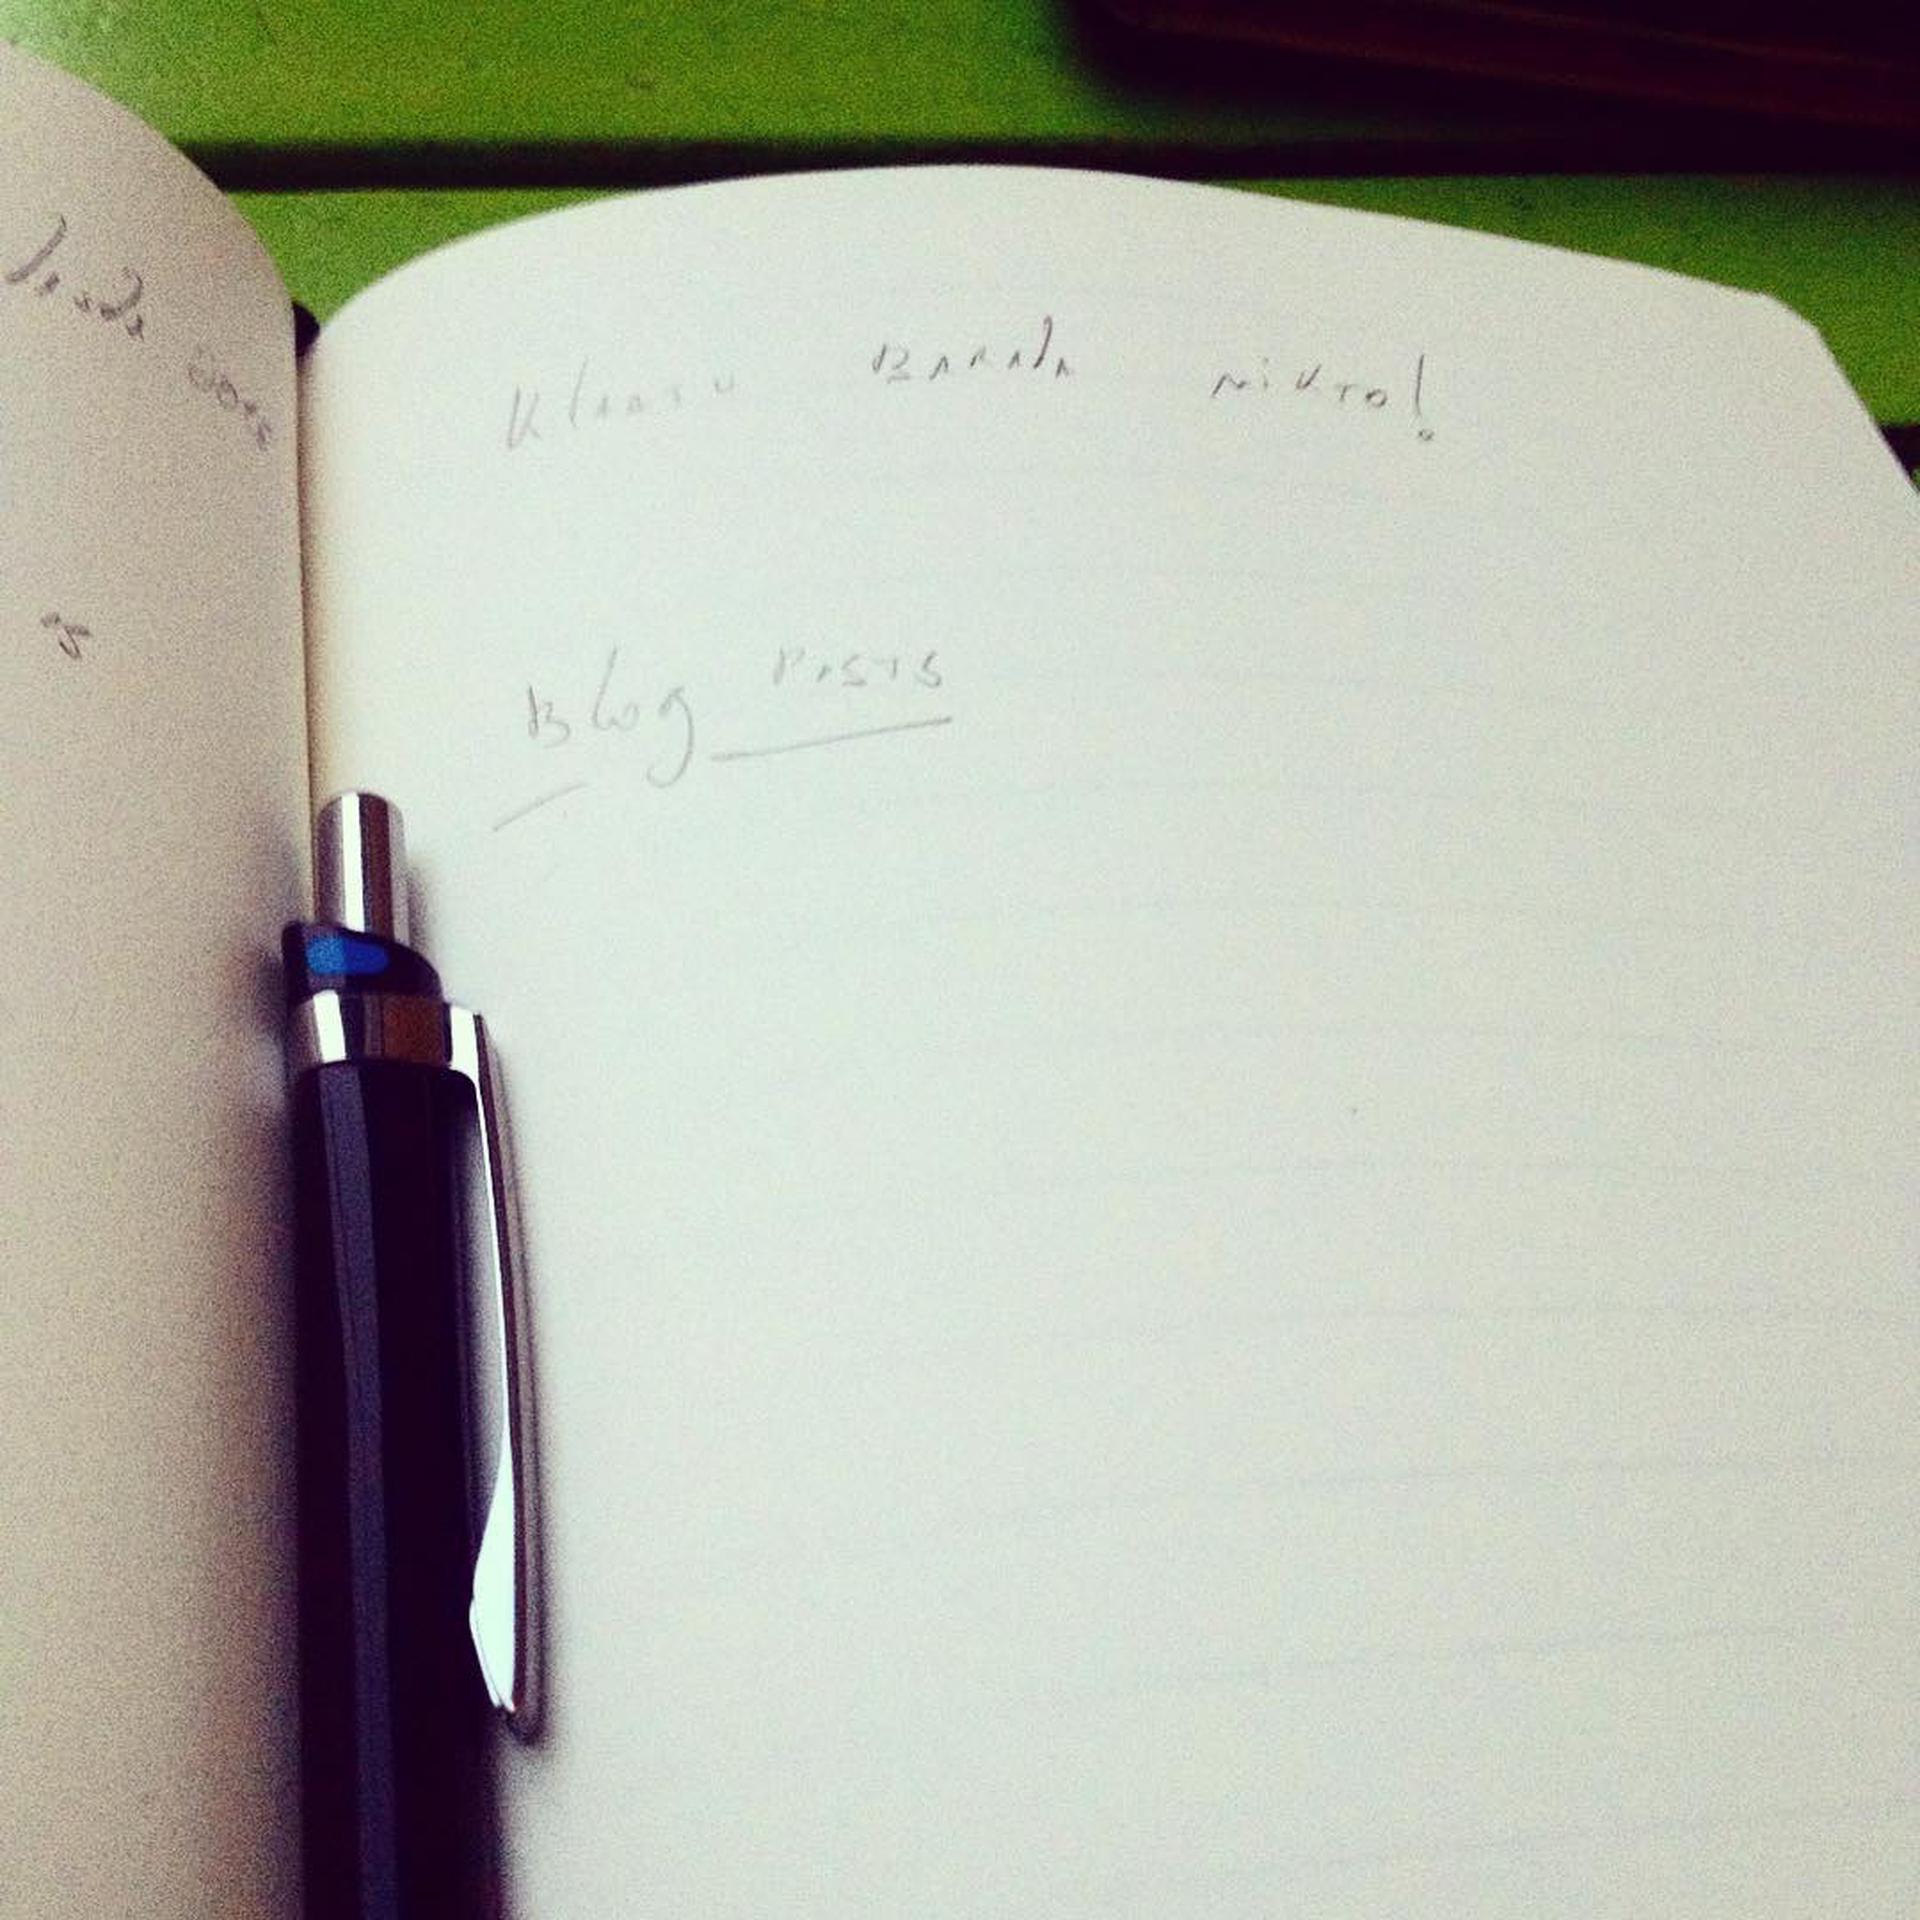 Klaatu BARAdA NiKTO!
Blog POSTS